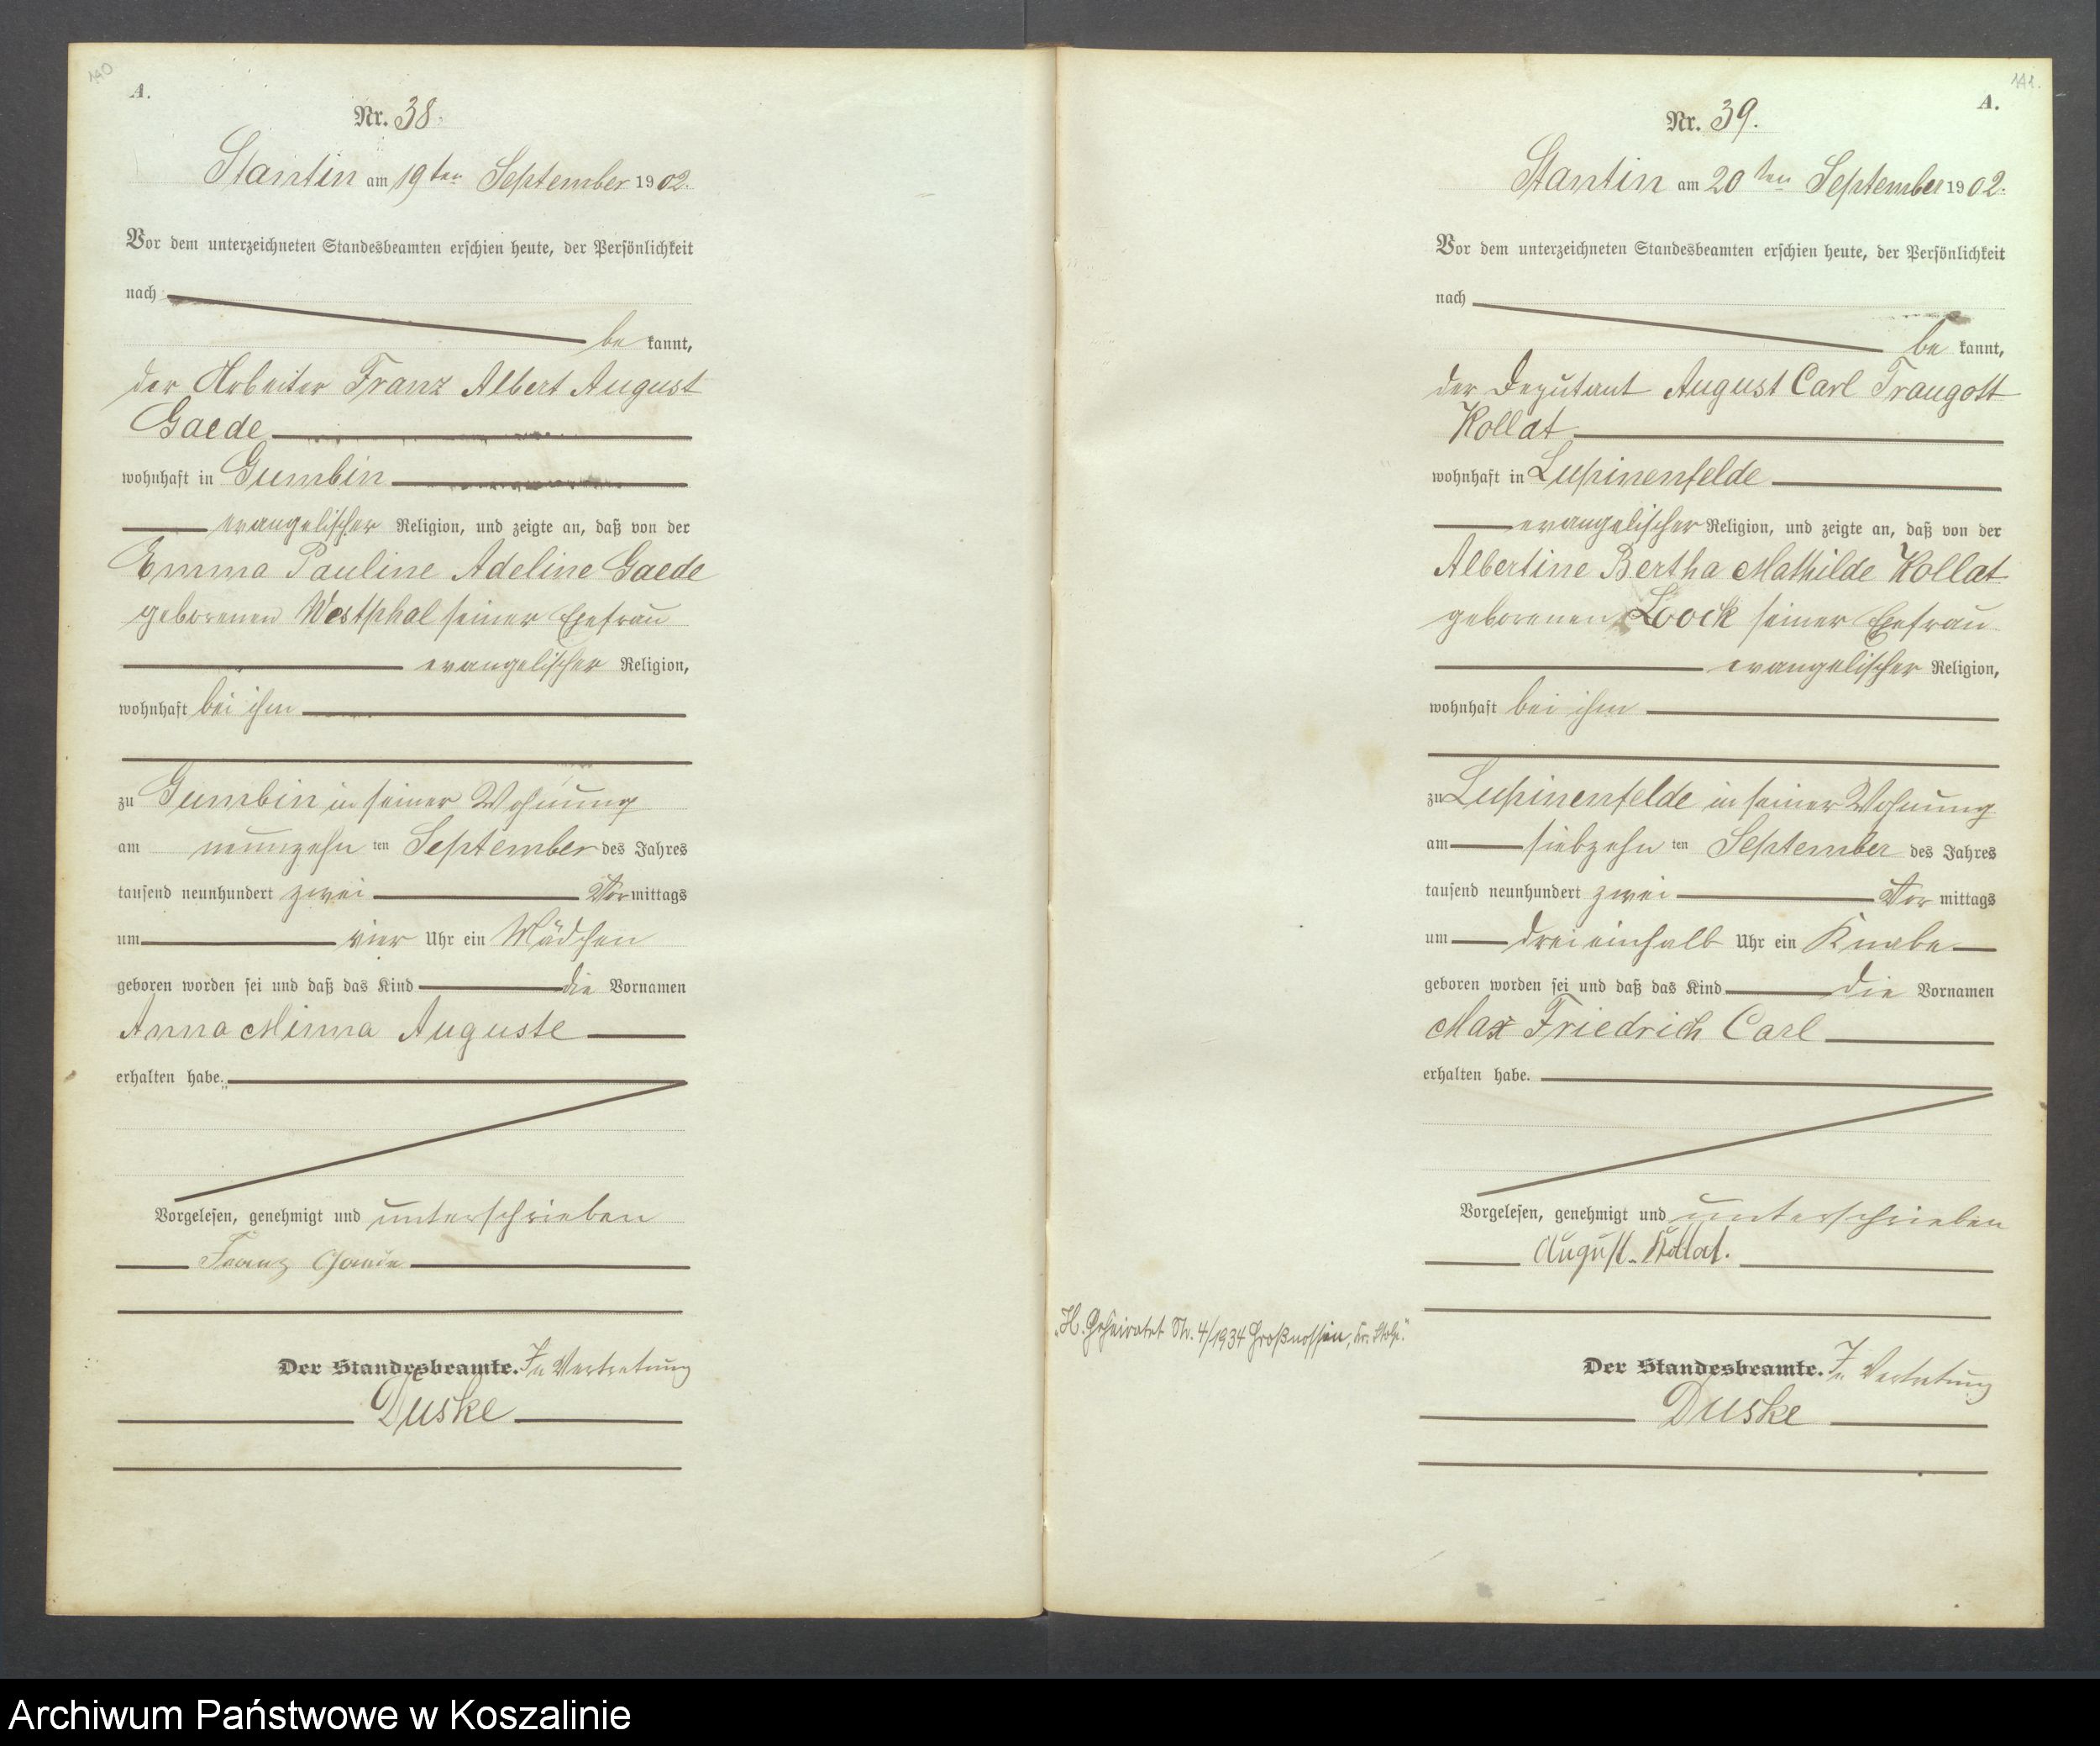 140
A.
Nr. 38.
Stantin am 19ten September 1902.
Vor dem unterzeichneten Standesbeamten erschien heute, der Persönlichkeit
nach
be kannt,
der Arbeiter Franz Albert August
Gaede
wohnhaft in Gumbin
evangelischer Religion, und zeigte an, daß von der
Emma Pauline Adeline Gaede
geborenen Westphal seiner Ehefrau
evangelischer Religion,
wohnhaft bei ihm
zu Gumbin in seiner Wohnung
am neunzehn ten September des Jahres
tausend neunhundert zwei Vormittags
um vier Uhr ein Mädchen
geboren worden sei und daß das Kind die Vornamen
Anna Minna Auguste
erhalten habe.
Vorgelesen, genehmigt und unterschrieben
Franz Gaede
Der Standesbeamte. In Vertretung
Duske
141.
A.
Nr. 39.
Stantin am 20ten September 1902.
Vor dem unterzeichneten Standesbeamten erschien heute, der Persönlichkeit
nach
be kannt,
der Deputant August Carl Traugott
Kollat
wohnhaft in Lupinenfelde
evangelischer Religion, und zeigte an, daß von der
Albertine Bertha Mathilde Kollat
geborenen Loock seiner Ehefrau
evangelischer Religion,
wohnhaft bei ihm
zu Lupinenfelde in seiner Wohnung
am siebzehn ten September des Jahres
tausend neunhundert zwei Vor mittags
um dreieinhalb Uhr ein Knabe
geboren worden sei und daß das Kind die Vornamen
Max Friedrich Carl
erhalten habe.
Vorgelesen, genehmigt und unterschrieben
August Kollat.
„H. Geheiratet Nr. 4/1934 Großnossin, Kr. Stolp."
Der Standesbeamte. In Vertretung
Duske
Archiwum Państwowe w Koszalinie